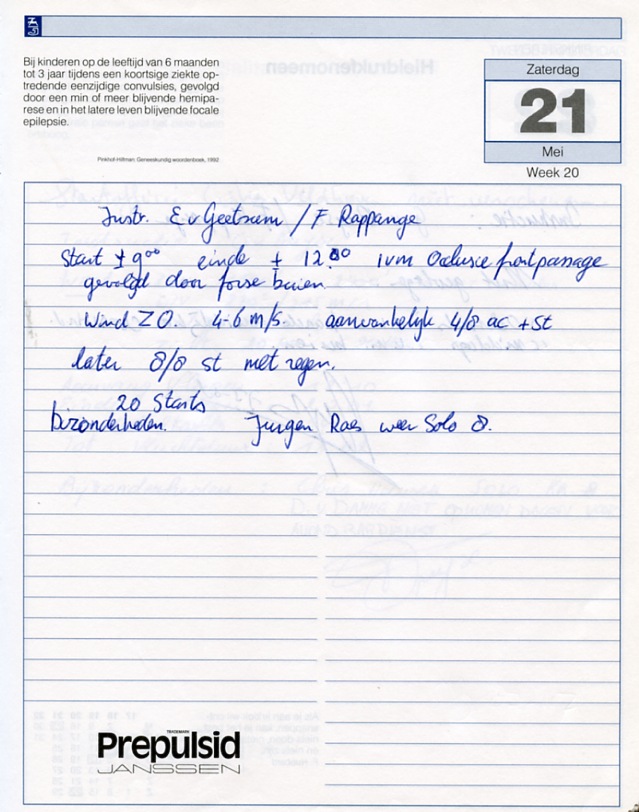 Bij kinderen op de leeftijd van 6 maanden
tot 3 jaar tijdens een koortsige ziekte op-
tredende eenzijdige convulsies, gevolgd
door een min of meer blijvende hemipa-
rese en in het latere leven blijvende focale
epilepsie.
Pinkhof-Hilfman. Geneeskundig woordenboek, 1992
Zaterdag
21
Mei
Week 20
Instr. E v Geetsum / F Rappange
Start ± 9⁰⁰ einde ± 12.⁰⁰ ivm Occlusie frontpassage
gevolgd door forse buien
Wind ZO. 4-6 m/s. aanvankelijk 4/8 ac + St
later 8/8 st met regen.
20 Starts
bizonderheden. Jurgen Raes weer Solo 8.
TRADEMARK
Prepulsid
JANSSEN